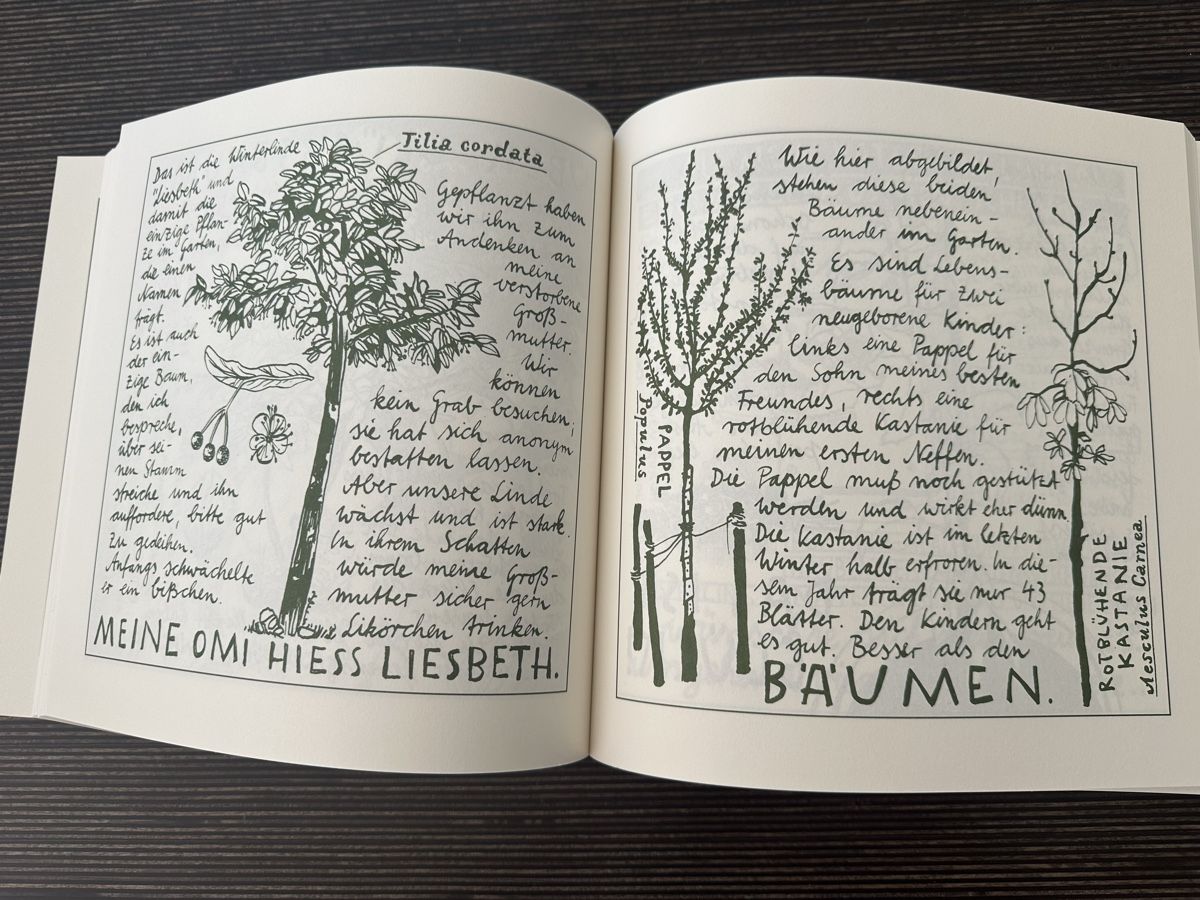 Das ist die Winterlinde
"Liesbeth" und
damit die
einzige Pflan-
ze im Garten,
die einen
Namen
trägt.
Es ist auch
der ein-
zige Baum,
den ich
bespreche,
über sei-
nen Stamm
streiche und ihn
auffordere, bitte gut
zu gedeihen.
Anfangs schwächelte
er ein bißchen.
Tilia cordata
Gepflanzt haben
wir ihn zum
Andenken an
meine
verstorbene
Groß-
mutter.
Wir
können
kein Grab besuchen,
sie hat sich anonym
bestatten lassen.
Aber unsere Linde
wächst und ist stark.
In ihrem Schatten
würde meine Groß-
mutter sicher gern
Likörchen trinken.
MEINE OMI HIESS LIESBETH.
Populus
PAPPEL
Wie hier abgebildet,
stehen diese beiden
Bäume nebenein-
ander im Garten.
Es sind Lebens-
bäume für zwei
neugeborene Kinder:
links eine Pappel für
den Sohn meines besten
Freundes, rechts eine
rotblühende Kastanie für
meinen ersten Neffen.
Die Pappel muß noch gestützt
werden und wirkt eher dünn.
Die Kastanie ist im letzten
Winter halb erfroren. In die-
sem Jahr trägt sie nur 43
Blätter. Den Kindern geht
es gut. Besser als den
BÄUMEN.
ROTBLÜHENDE
KASTANIE
Aesculus Carnea